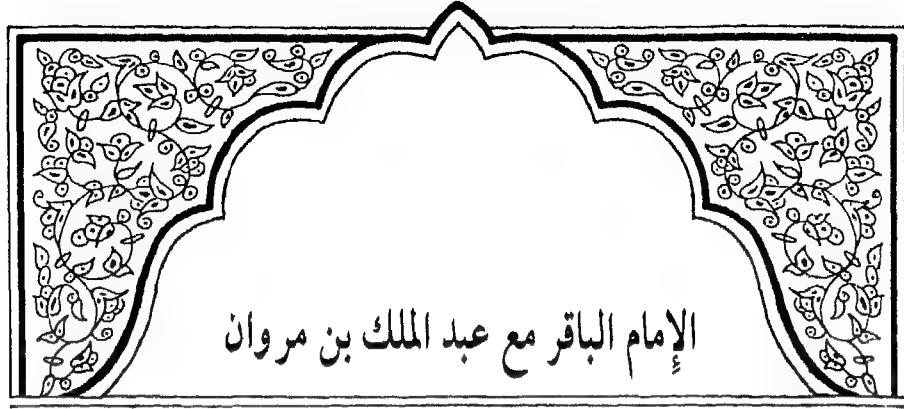 الإمام الباقر مع عبد الملك بن مروان